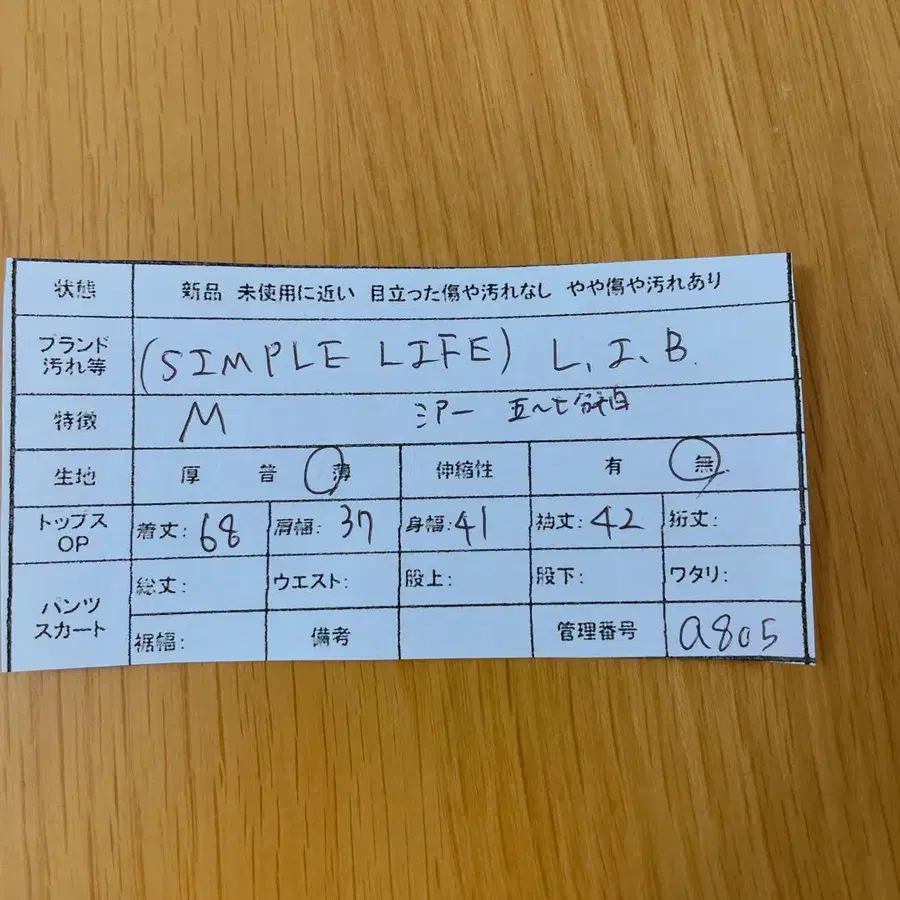 状態 新品 未使用に近い 目立った傷や汚れなし やや傷や汚れあり
ブランド 汚れ等 (SIMPLE LIFE) L、I、B.
特徴 M シアー 五〜七分袖
生地 厚 普 薄 伸縮性 有 無
トップス OP 着丈: 68 肩幅: 37 身幅: 41 袖丈: 42 裄丈:
パンツ スカート 総丈: ウエスト: 股上: 股下: ワタリ:
裾幅: 備考 管理番号 a805